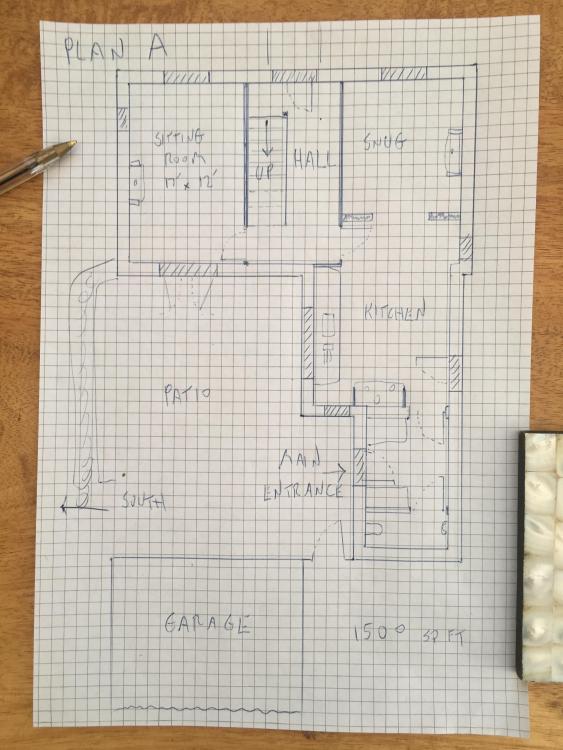 PLAN A
SITTING
ROOM
17' x 12'
UP
HALL
SNUG
KITCHEN
PATIO
MAIN
ENTRANCE
SOUTH
GARAGE
1500 SQ FT